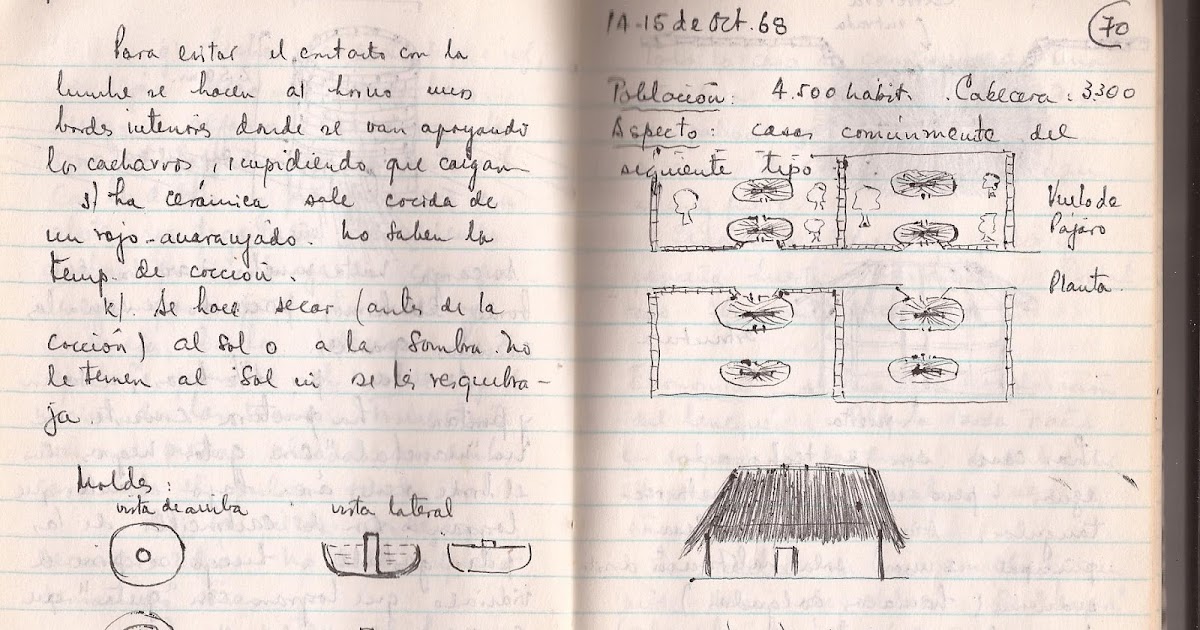 Para evitar el contacto con la
lumbre se hacen al horno unos
bordes interiores donde se van apoyando
los cacharros, impidiendo que caigan
j) La cerámica sale cocida de
un rojo-anaranjado. No saben la
temp. de cocción.
k) Se hace secar (antes de la
cocción) al sol o a la sombra. No
le temen al sol ni se les resquebra-
ja.
Moldes:
vista de arriba vista lateral
14-15 de Oct. 68
70
Población: 4.500 habit. Cabecera: 3.300
Aspecto: casas comúnmente del
siguiente tipo
Vuelo de
Pájaro
Planta.